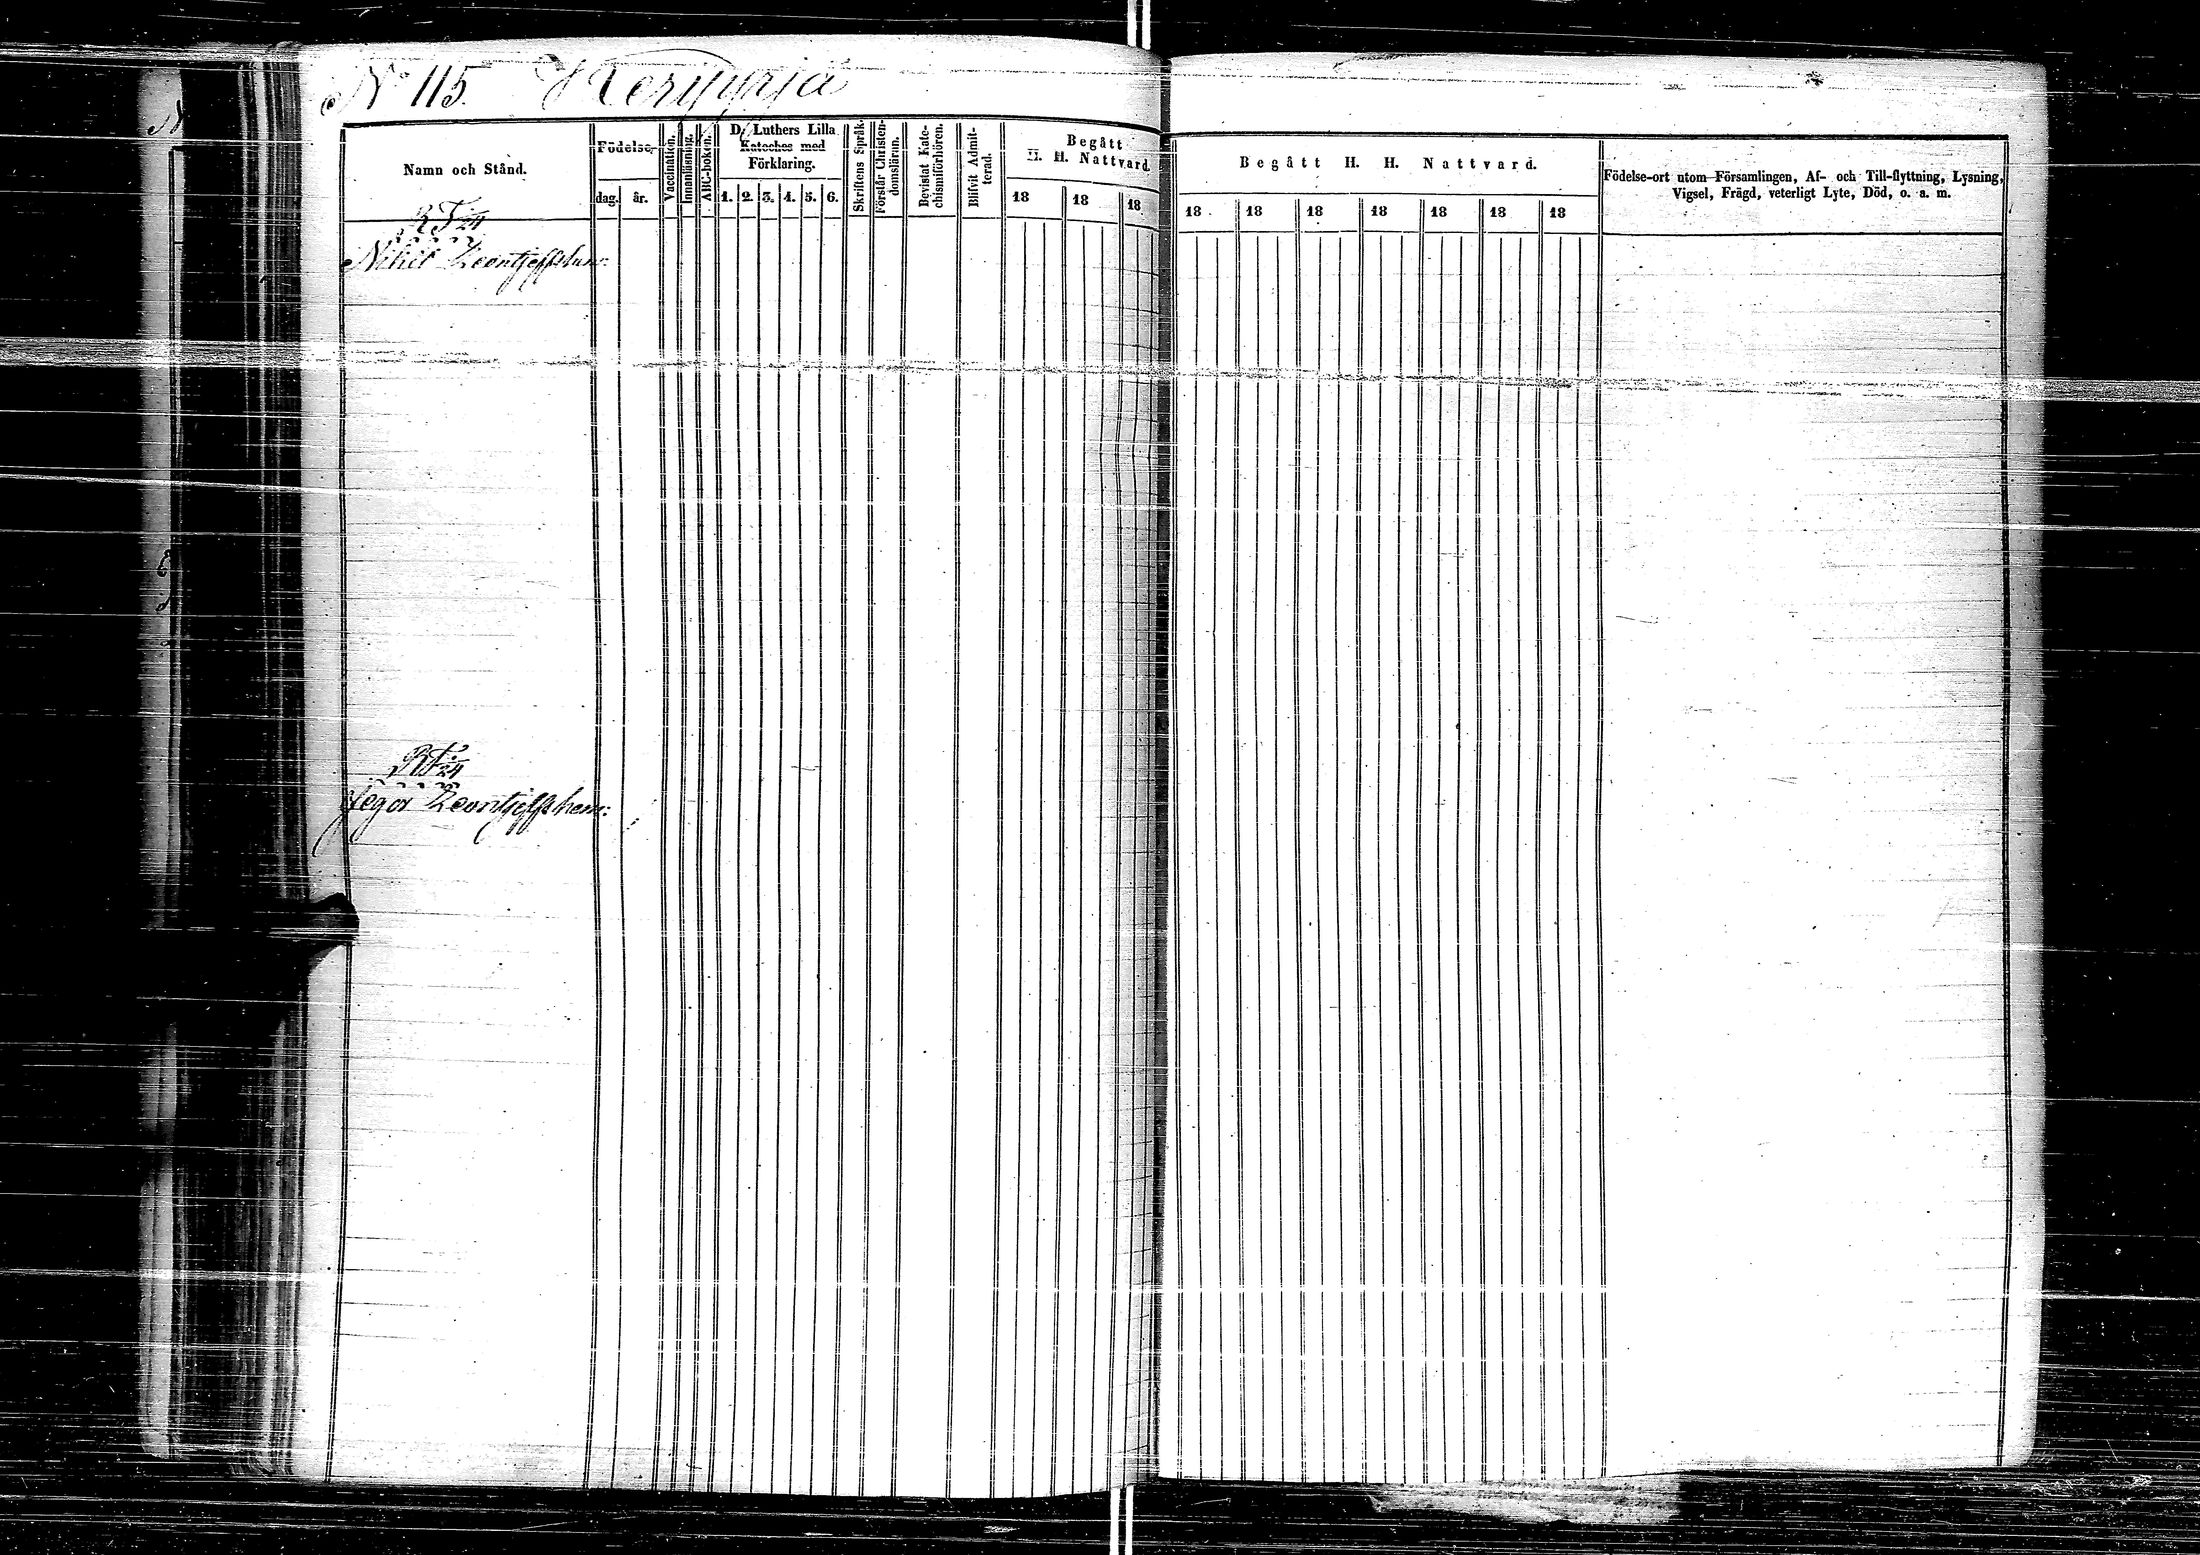 No 115. Keryyrjä
Namn och Stånd.
Födelse-
dag. år.
Vaccination.
Innanläsning.
ABC-boken.
D. Luthers Lilla
Kateches med
Förklaring.
1. 2. 3. 4. 5. 6.
Skriftens Språk.
Förstår Christen-
domslärun.
Bevistat Kate-
chismiförhören.
Blifvit Admit-
terad.
Begått
H. H. Nattvard.
18 18 18
Begått H. H. Nattvard.
18 18 18 18 18 18 18
Födelse-ort utom Församlingen, Af- och Till-flyttning, Lysning,
Vigsel, Frägd, veterligt Lyte, Död, o. a. m.
RT 24
Leontjeffshem:
RT 24
Jegor Leontjeffshem: